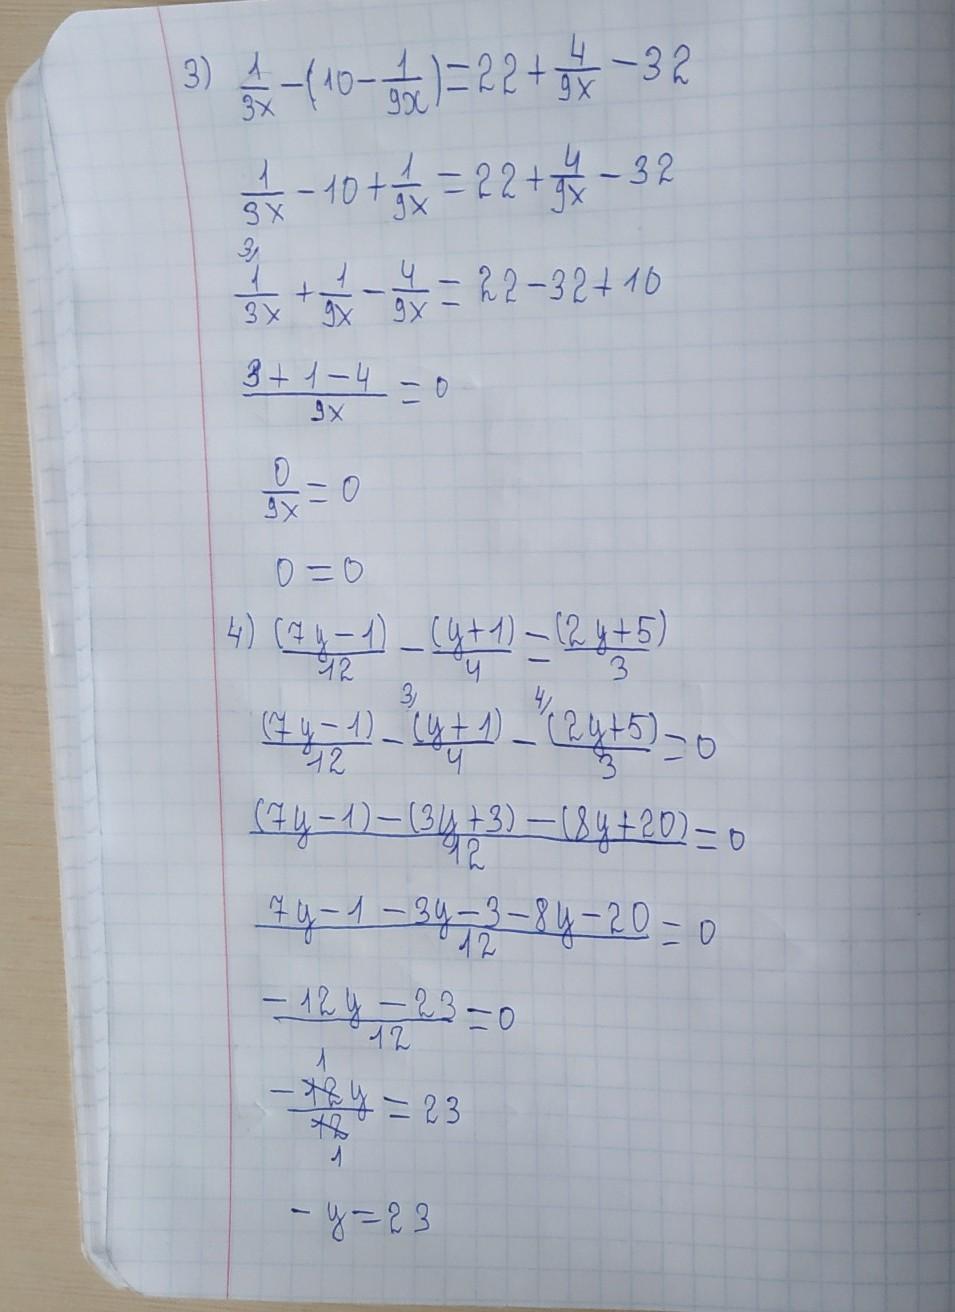 3) 1/3x - (10 - 1/9x) = 22 + 4/9x - 32
1/3x - 10 + 1/9x = 22 + 4/9x - 32
3) 1/3x + 1/9x - 4/9x = 22 - 32 + 10
3 + 1 - 4 / 9x = 0
0/9x = 0
0 = 0
4) (7y - 1)/12 - (y + 1)/4 = (2y + 5)/3
(7y - 1)/12 - 3) (y + 1)/4 - 4) (2y + 5)/3 = 0
(7y - 1) - (3y + 3) - (8y + 20) / 12 = 0
7y - 1 - 3y - 3 - 8y - 20 / 12 = 0
-12y - 23 / 12 = 0
1
-12y / 12 = 23
1
- y = 23